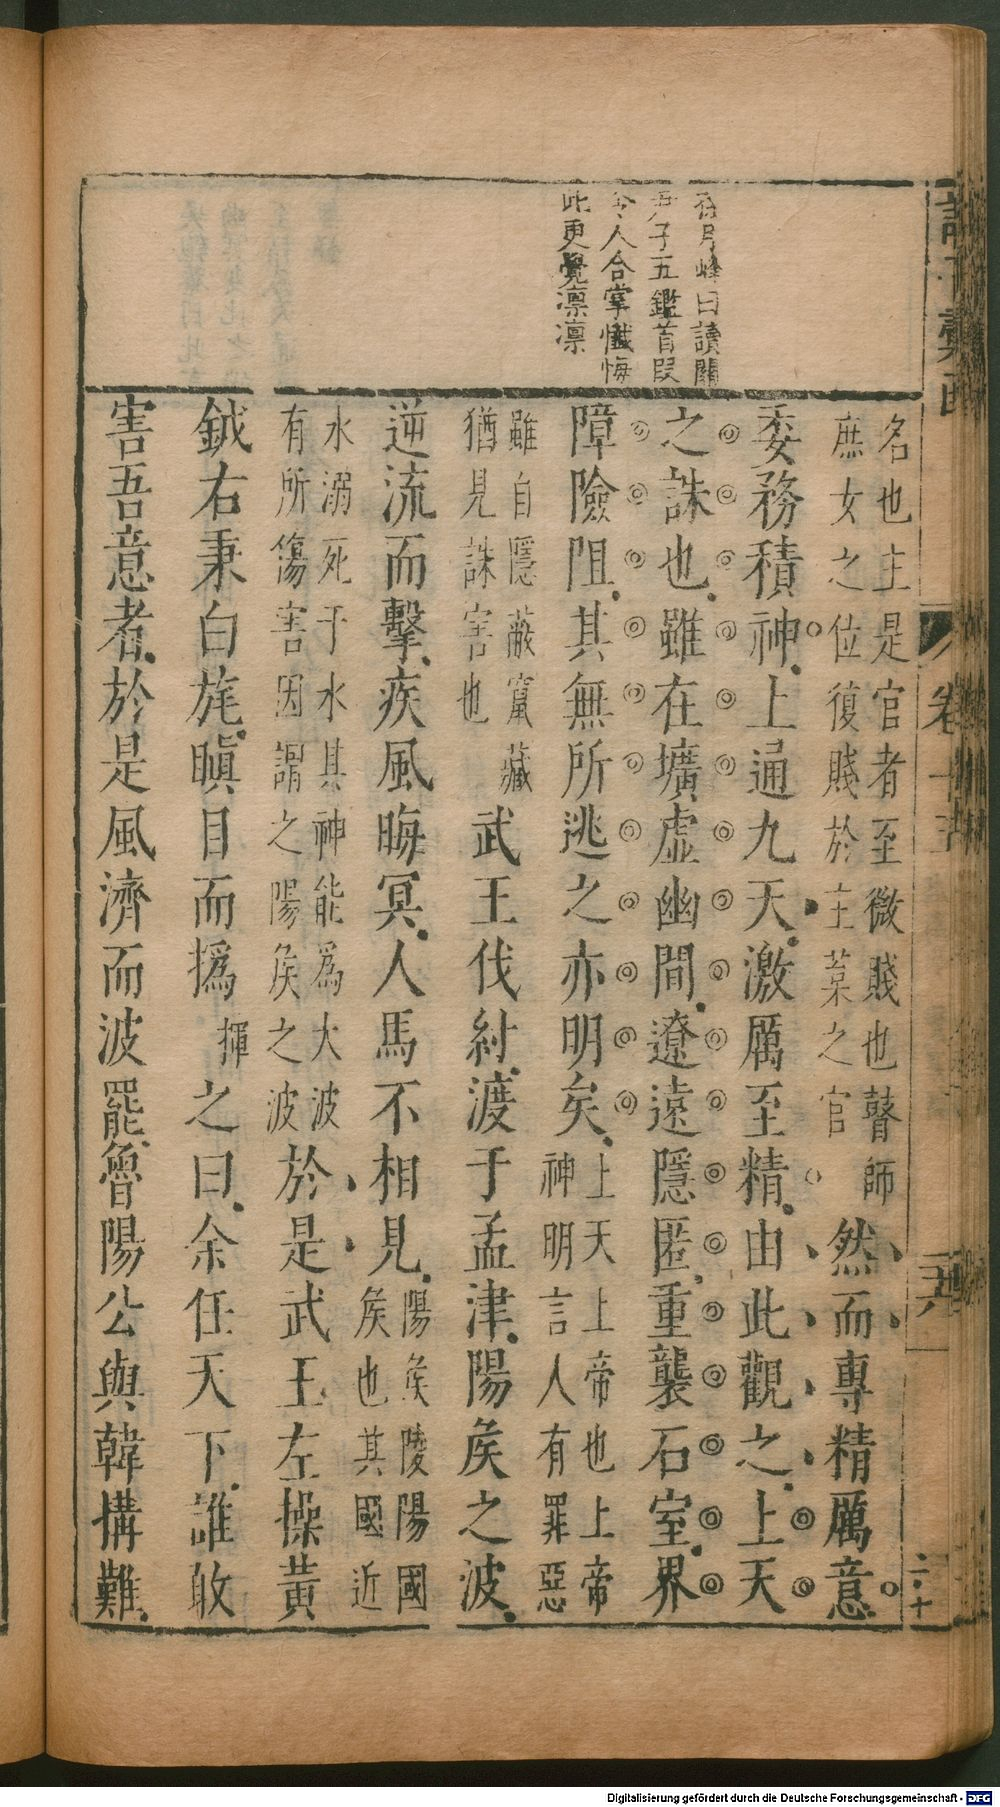 孫月峰曰讀關
尹子五鑑首段
令人合掌懺悔
此更覺凛凛
名也主是官者至微賤也瞽師
庶女之位復賤於主菒之官
然而專精厲意
委務積神上通九天激厲至精由此觀之上天
之誅也雖在壙虛幽間遼遠隱匿重襲石室界
障險阻其無所逃之亦明矣
上天上帝也上帝
神明言人有罪惡
雖自隱蔽竄藏
猶見誅害也
武王伐紂渡于孟津陽矦之波
逆流而擊疾風晦冥人馬不相見
陽矦陵陽國
矦也其國近
水溺死于水其神能爲大波
有所傷害因謂之陽矦之波
於是武王左操黃
鉞右秉白旄瞋目而撝
揮
之曰余任天下誰敢
害吾意者於是風濟而波罷魯陽公與韓搆難
卷十五
二十
Digitalisierung gefördert durch die Deutsche Forschungsgemeinschaft - DFG